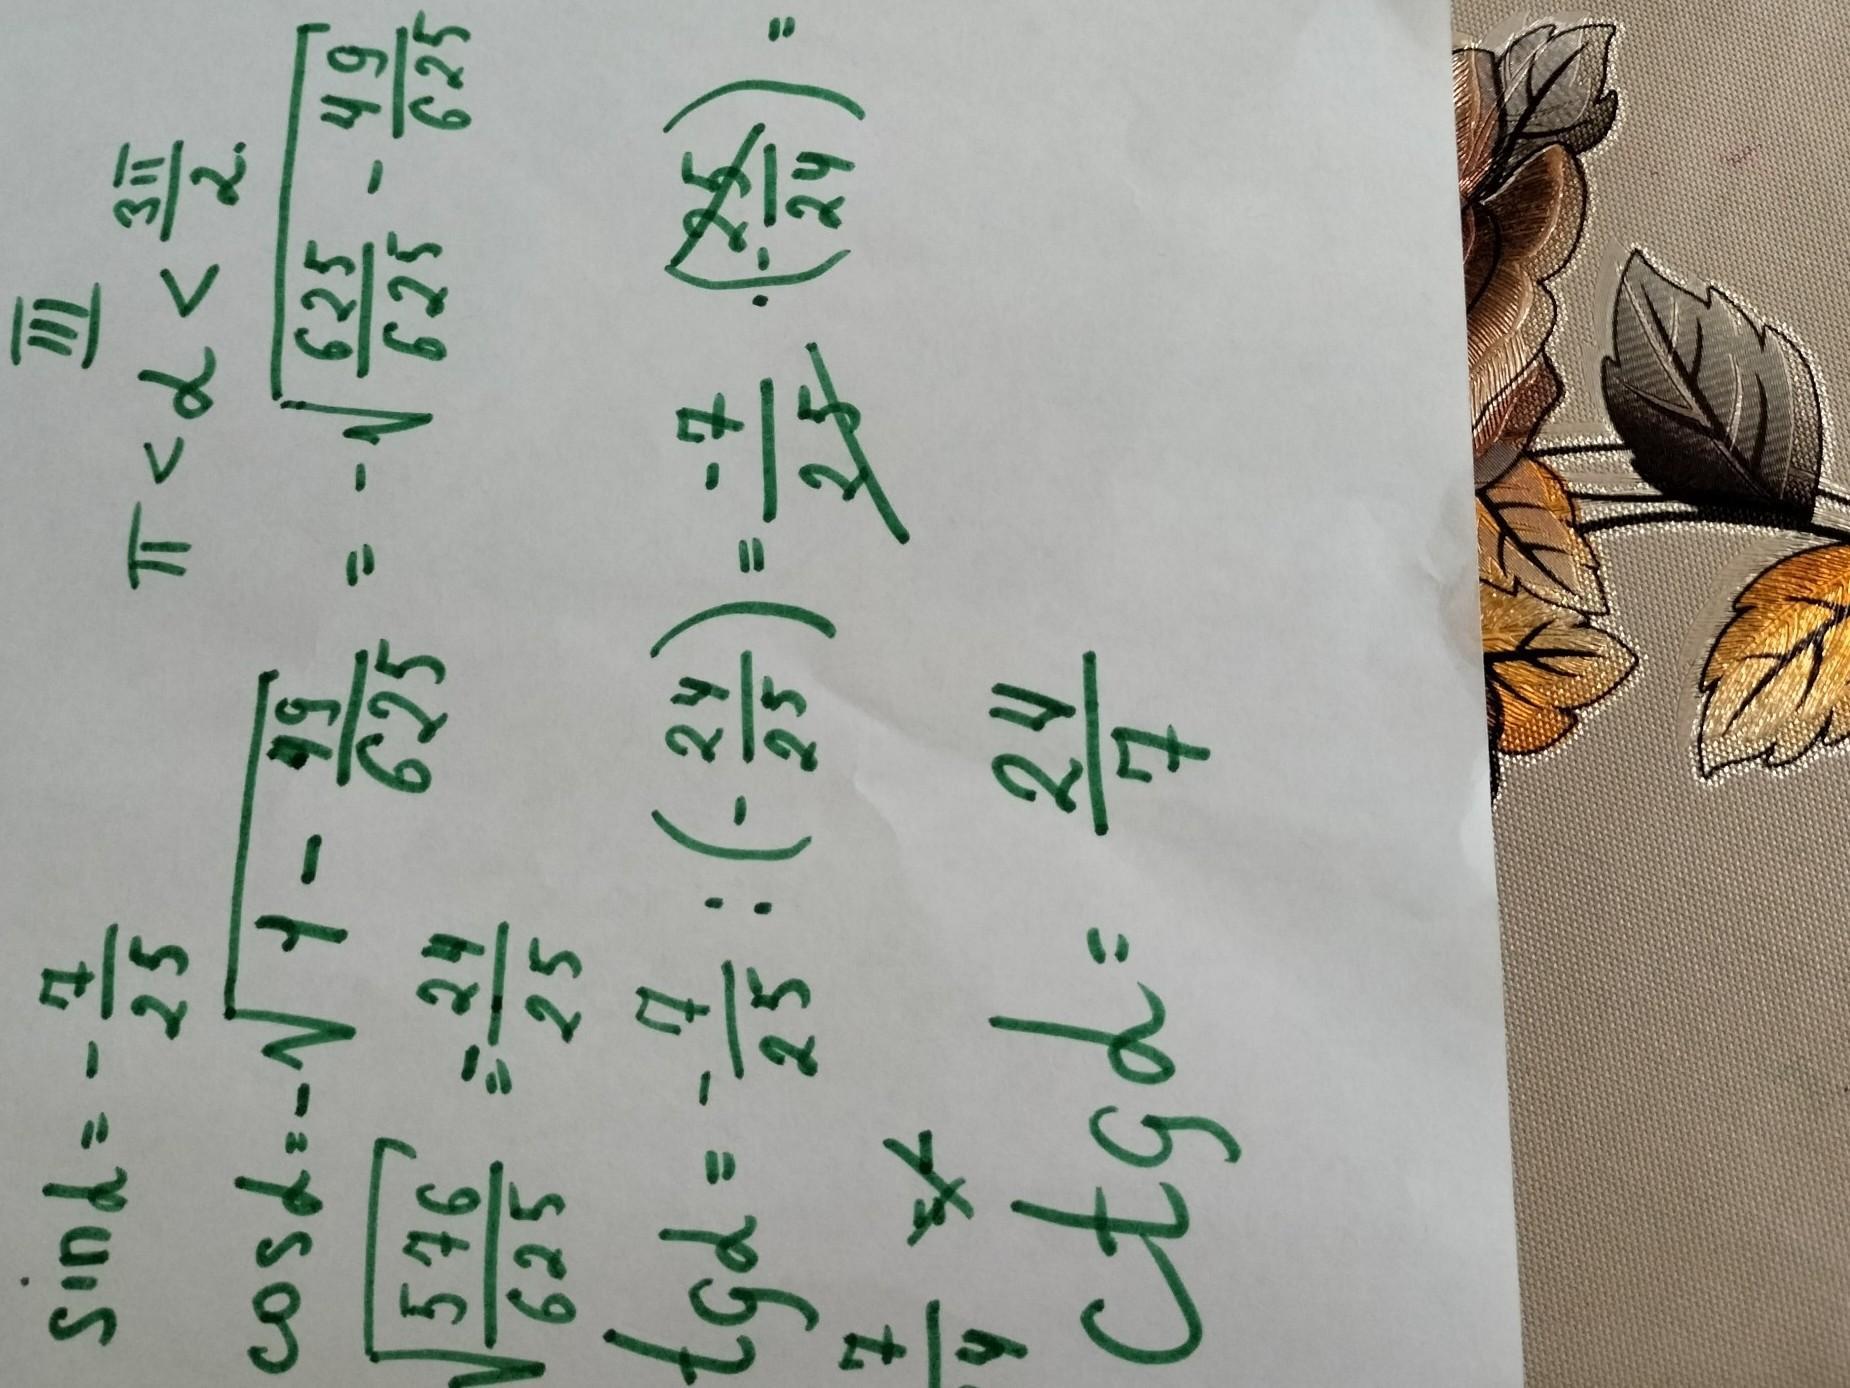 III
sin α = - 7/25 π < α < 3π/2.
cos α = - √(1 - 49/625) = - √(625/625 - 49/625)
√(576/625) = - 24/25
tg α = - 7/25 : (- 24/25) = -7/25 · (- 25/24) =
7/24
ctg α = 24/7